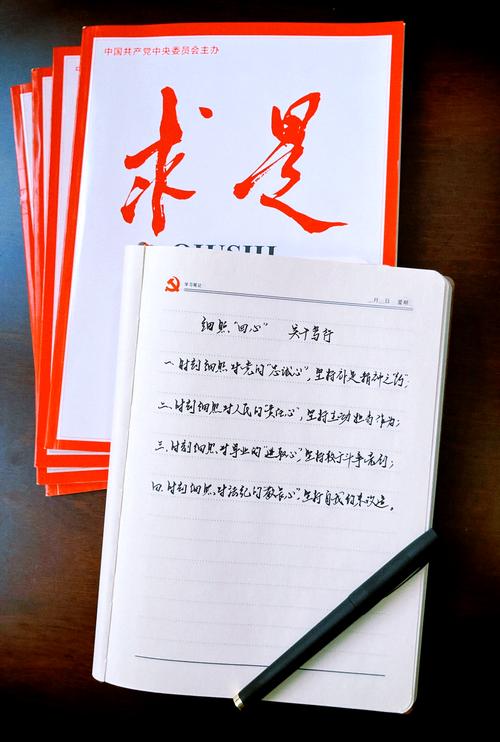 中国共产党中央委员会主办
求是
QIUSHI
学习笔记
月 日 星期
细照“四心” 实干笃行
一.时刻细照对党的“忠诚心”,坚持补足精神之“钙”;
二.时刻细照对人民的“责任心”,坚持主动担当作为;
三.时刻细照对事业的“进取心”,坚持敢于斗争
四.时刻细照对法纪的“敬畏心”,坚持自我约束改造。